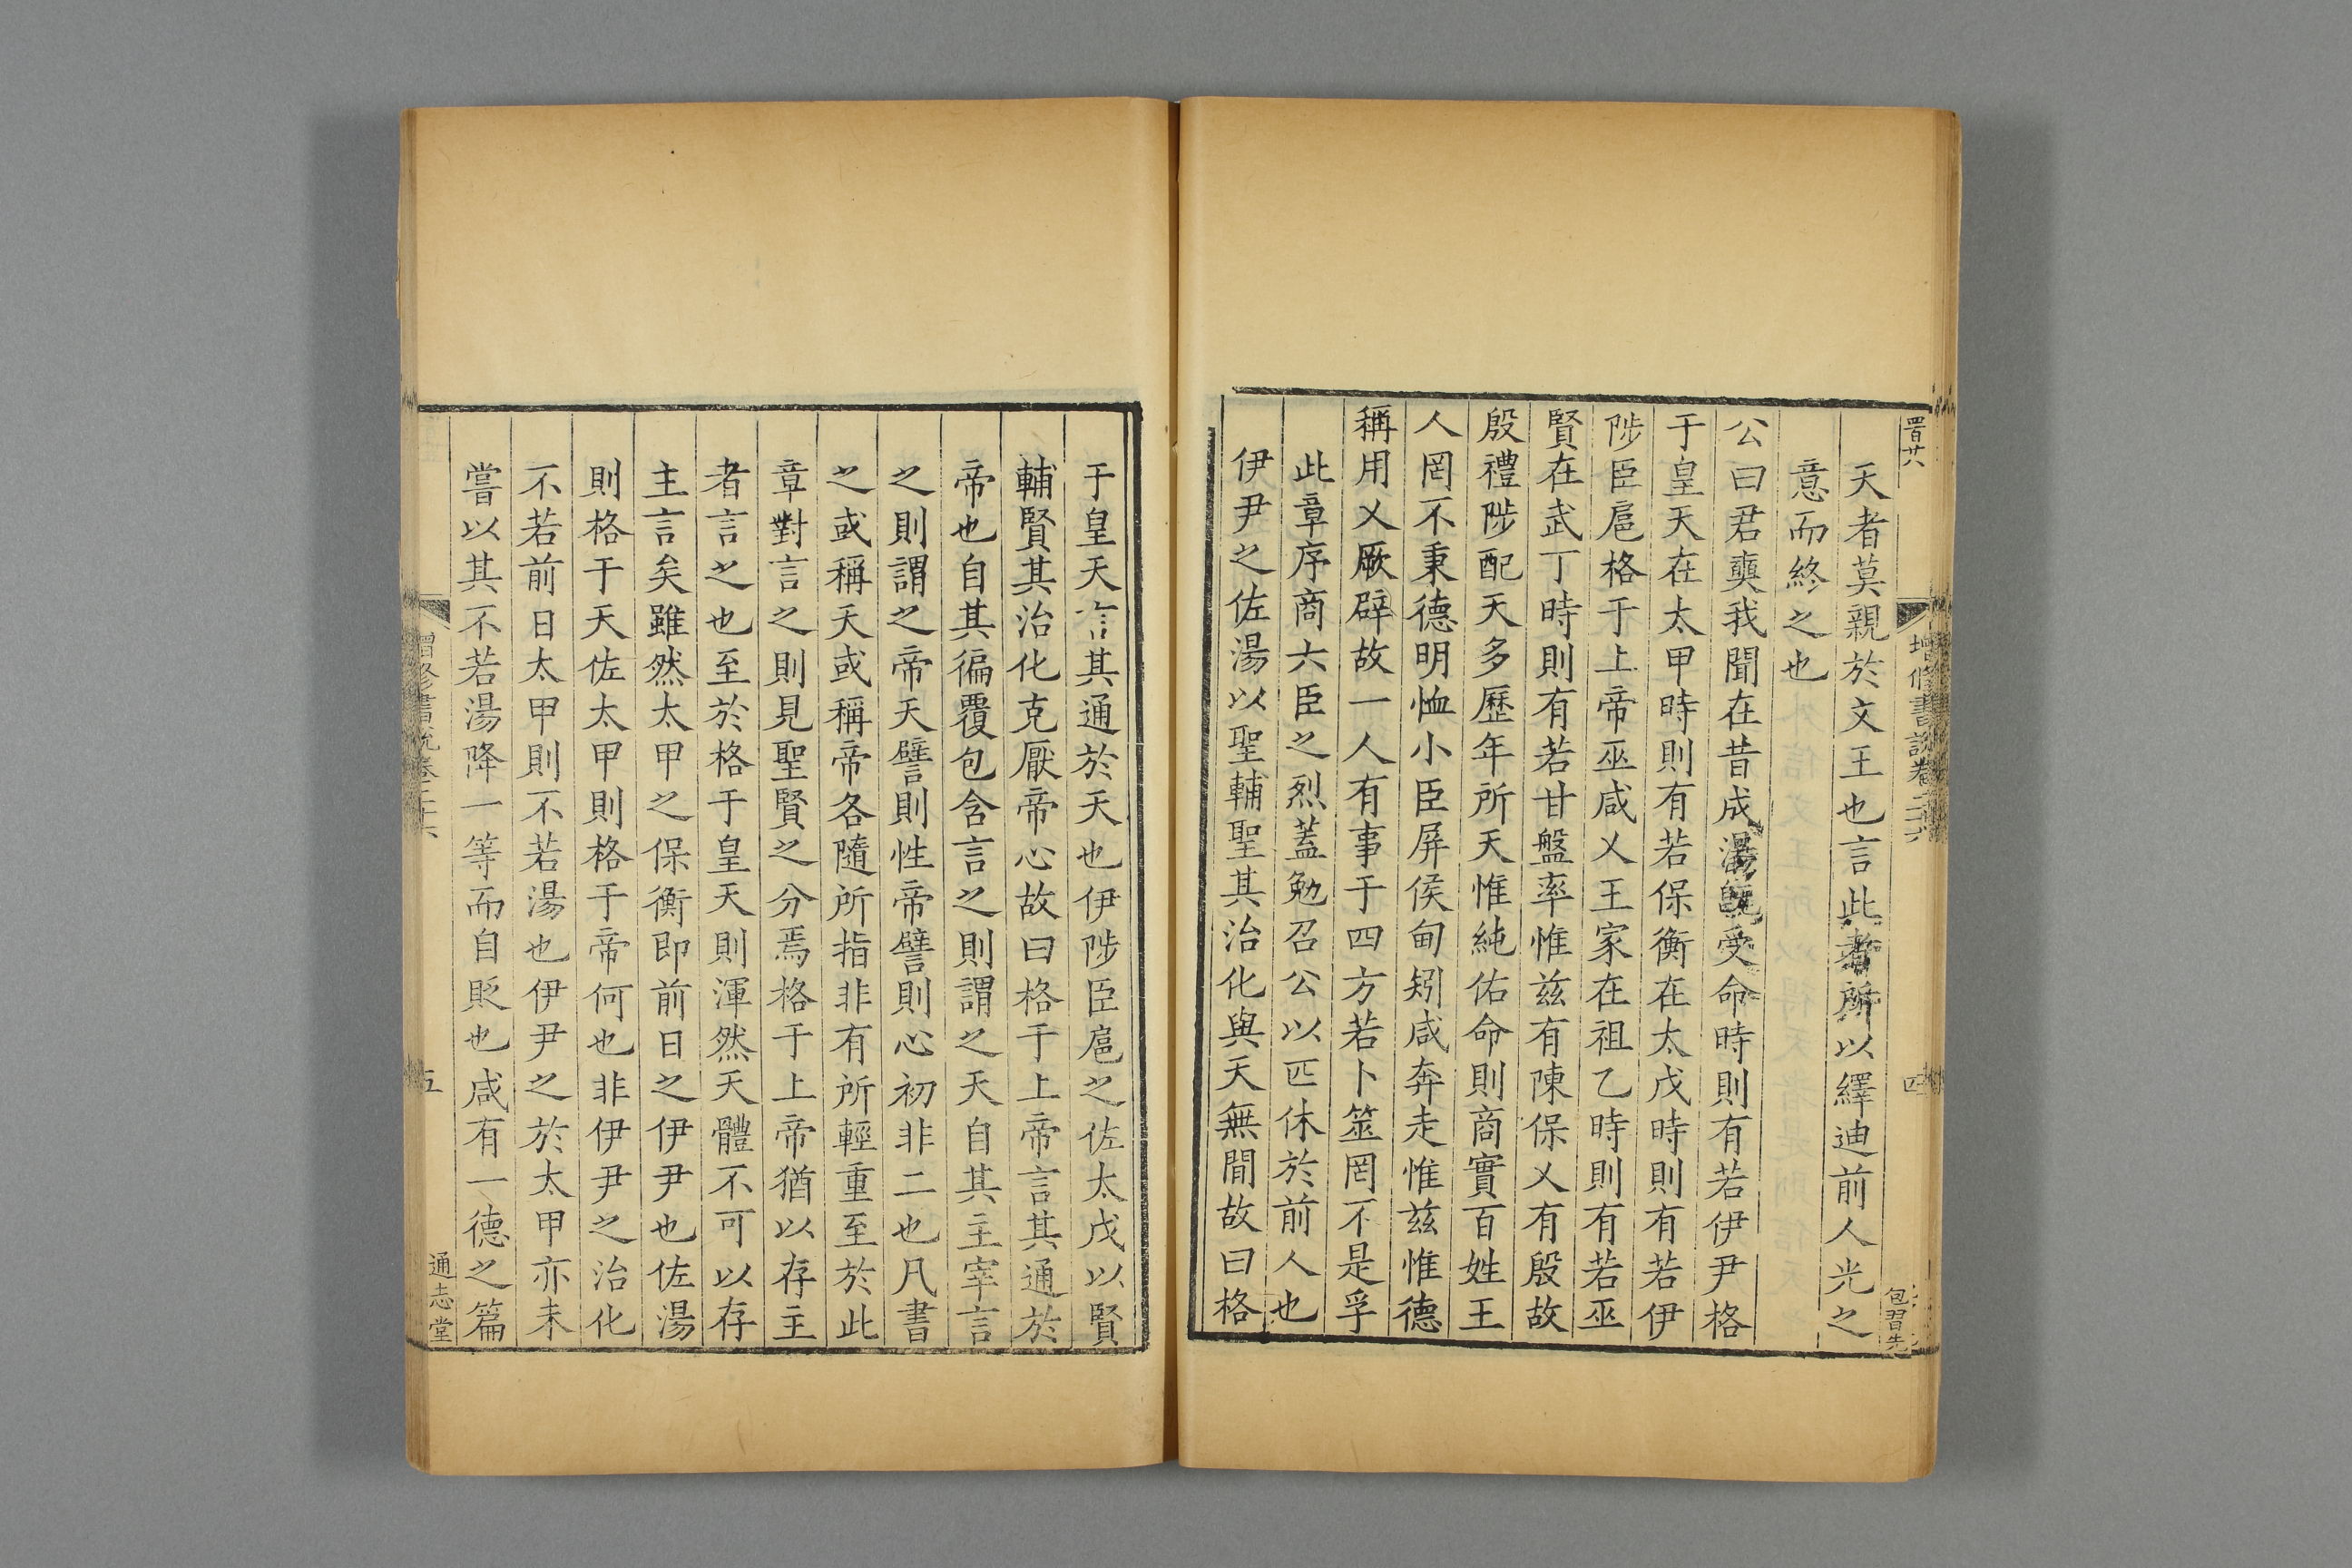 增修書說卷二十六
四
天者莫親於文王也言此者所以繹迪前人光之
意而終之也
公曰君奭我聞在昔成湯既受命時則有若伊尹格
于皇天在太甲時則有若保衡在太戊時則有若伊
陟臣扈格于上帝巫咸乂王家在祖乙時則有若巫
賢在武丁時則有若甘盤率惟茲有陳保乂有殷故
殷禮陟配天多歷年所天惟純佑命則商實百姓王
人罔不秉德明恤小臣屏侯甸矧咸奔走惟茲惟德
稱用乂厥辟故一人有事于四方若卜筮罔不是孚
此章序商六臣之烈蓋勉召公以匹休於前人也
伊尹之佐湯以聖輔聖其治化與天無間故曰格
于皇天言其通於天也伊陟臣扈之佐太戊以賢
輔賢其治化克厭帝心故曰格于上帝言其通於
帝也自其徧覆包含言之則謂之天自其主宰言
之則謂之帝天譬則性帝譬則心初非二也凡書
之或稱天或稱帝各隨所指非有所輕重至於此
章對言之則見聖賢之分焉格于上帝猶以存主
者言之也至於格于皇天則渾然天體不可以存
主言矣雖然太甲之保衡即前日之伊尹也佐湯
則格于天佐太甲則格于帝何也非伊尹之治化
不若前日太甲則不若湯也伊尹之於太甲亦未
嘗以其不若湯降一等而自貶也咸有一德之篇
增修書說卷二十六
五
通志堂